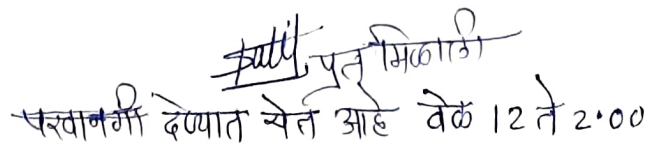 Patil प्रत मिळाली
परवानगी देण्यात येत आहे वेळ 12 ते 2.00